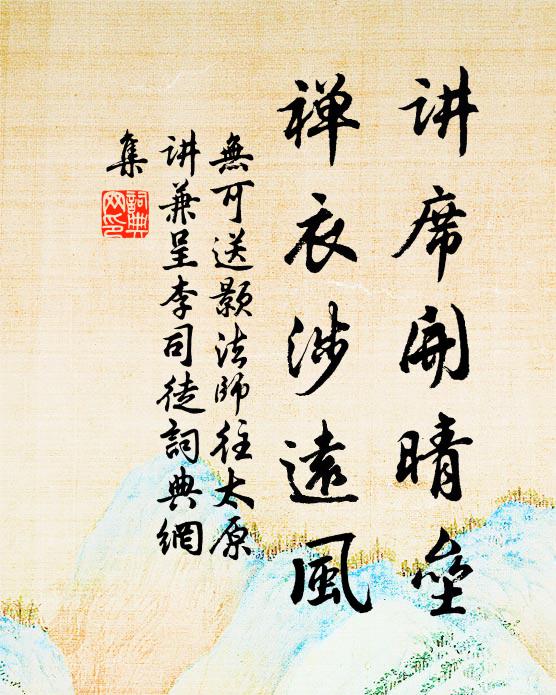 讲席開晴垒
禅衣涉遠風
無可送顥法師往太原
讲兼呈李司徒詞典網
集
詞典
网印